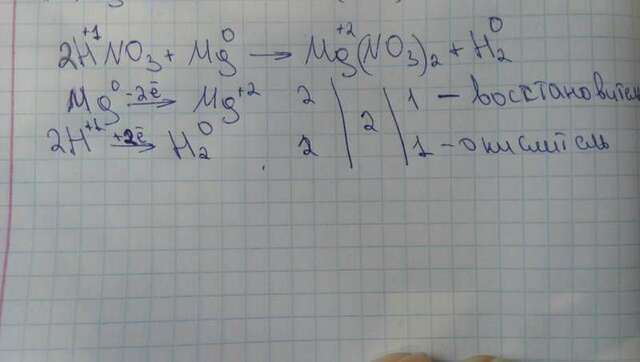 2H⁺¹NO₃ + Mg⁰ → Mg⁺²(NO₃)₂ + H₂⁰
Mg⁰ -2ē → Mg⁺² 2 | 2 | 1 – восстановитель
2H⁺¹ +2ē → H₂⁰ 2 | | 1 – окислитель